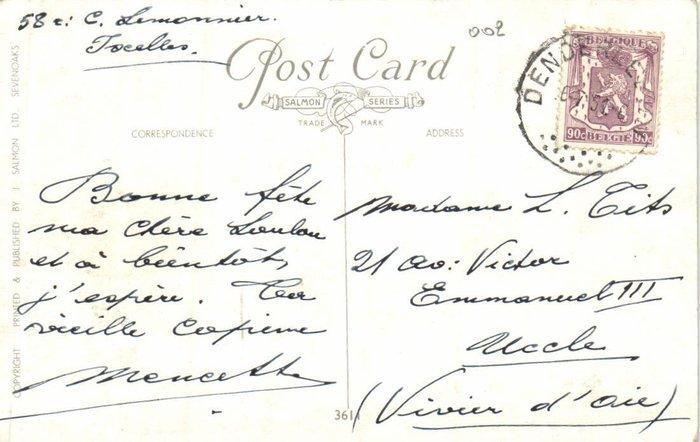 58 r: C. Lemonnier.
Ixelles.
002
Post Card
SALMON SERIES
TRADE MARK
CORRESPONDENCE
ADDRESS
BELGIQUE
90c BELGIË 90c
DENDE
Bonne fête
ma chère Loulou
et à bientôt,
j'espère. Ta
vieille copine
Madame L. Tits
21 av: Victor
Emmanuel III
Uccle
(Vivier d'oie)
3611
COPYRIGHT PRINTED & PUBLISHED BY J. SALMON LTD. SEVENOAKS